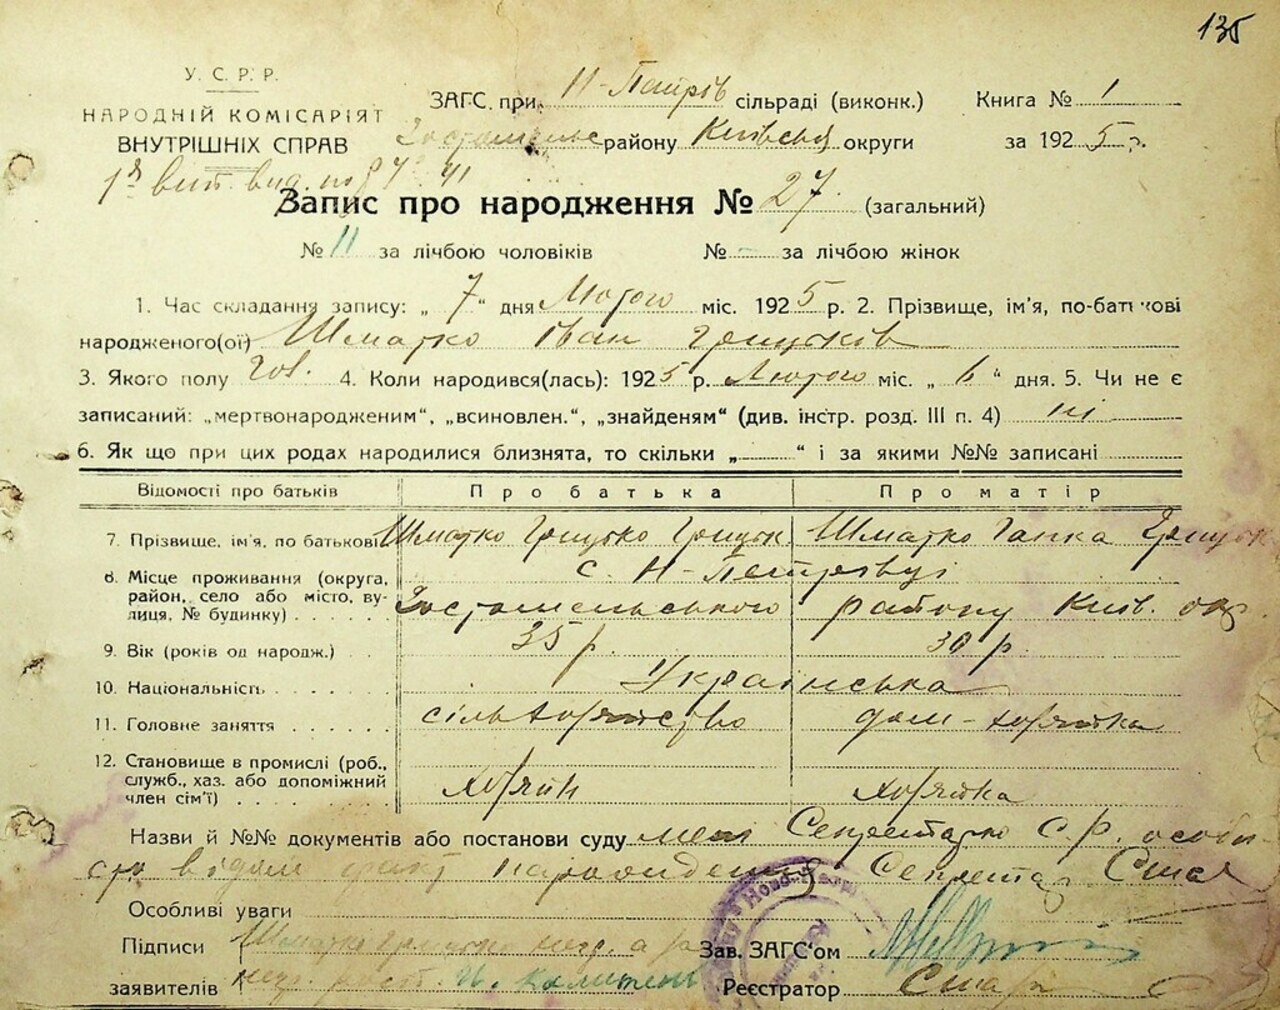 135
У. С. Р. Р.
НАРОДНІЙ КОМІСАРІЯТ
ВНУТРІШНІХ СПРАВ
ЗАГС. при Н-Петрів сільраді (виконк.)
району Київської округи
Книга № 1
за 1925 р.
Запис про народження № 27 (загальний)
№ 11 за лічбою чоловіків № - за лічбою жінок
1. Час складання запису: „ 7 “ дня Лютого міс. 1925 р. 2. Прізвище, ім'я, по-батькові
народженого(ої) Шматко Іван Грицьків
3. Якого полу Чол. 4. Коли народився(лась): 1925 р. Лютого міс. „ 6 “ дня. 5. Чи не є
записаний: „мертвонародженим“, „всиновлен.“, „знайденям“ (див. інстр. розд. III п. 4) ні
6. Як що при цих родах народилися близнята, то скільки „ “ і за якими №№ записані
Відомості про батьків Про батька Про матір
7. Прізвище, ім'я, по батькові Шматко Грицько Грицьк. Шматко Ганна Грицьк
8. Місце проживання (округа, с. Н-Петрівці
район, село або місто, ву-
лиця, № будинку) Гостомельського району Київ. окр.
9. Вік (років од народж.) 35 р. 30 р.
10. Національність Українська
11. Головне заняття дом-хозяйка
12. Становище в промислі (роб.,
служб., хаз. або допоміжний
член сім'ї) хозяїн хозяйка
Назви й №№ документів або постанови суду Секретарю С.Р. особи
відом факт народження Секретар
Особливі уваги
Підписи Шматко Грицько негр. а за Зав. ЗАГС'ом
заявителів Реєстратор